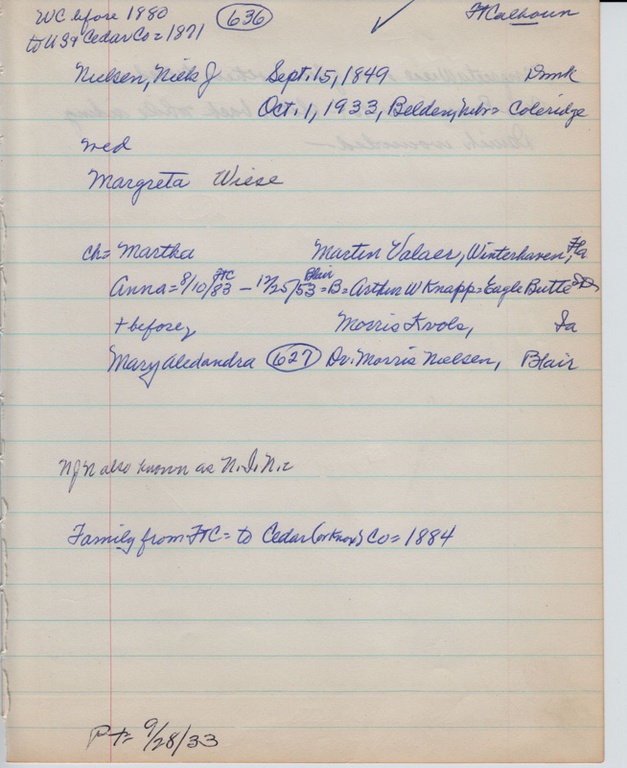 WC before 1880 636 Ft Calhoun
to US & Cedar Co = 1871
Nielsen, Nick J Sept. 15, 1849 Dnmk
Oct. 1, 1933, Belden, Nebr = Coleridge
med
Margreta Wiese
ch = Martha Martin Valaer, Winterhaven, Fla
FTC Blair
Anna = 8/10/83 - 12/25/53 = B = Arthur W Knapp = Eagle Butte SD
+ before, Morris Kvols, Ia
Mary Alexandra 627 Dr. Morris Nielsen, Blair
NJN also known as N.I.N.
Family from FTC = to Cedar (or Knox) Co = 1884
PT = 9/28/33